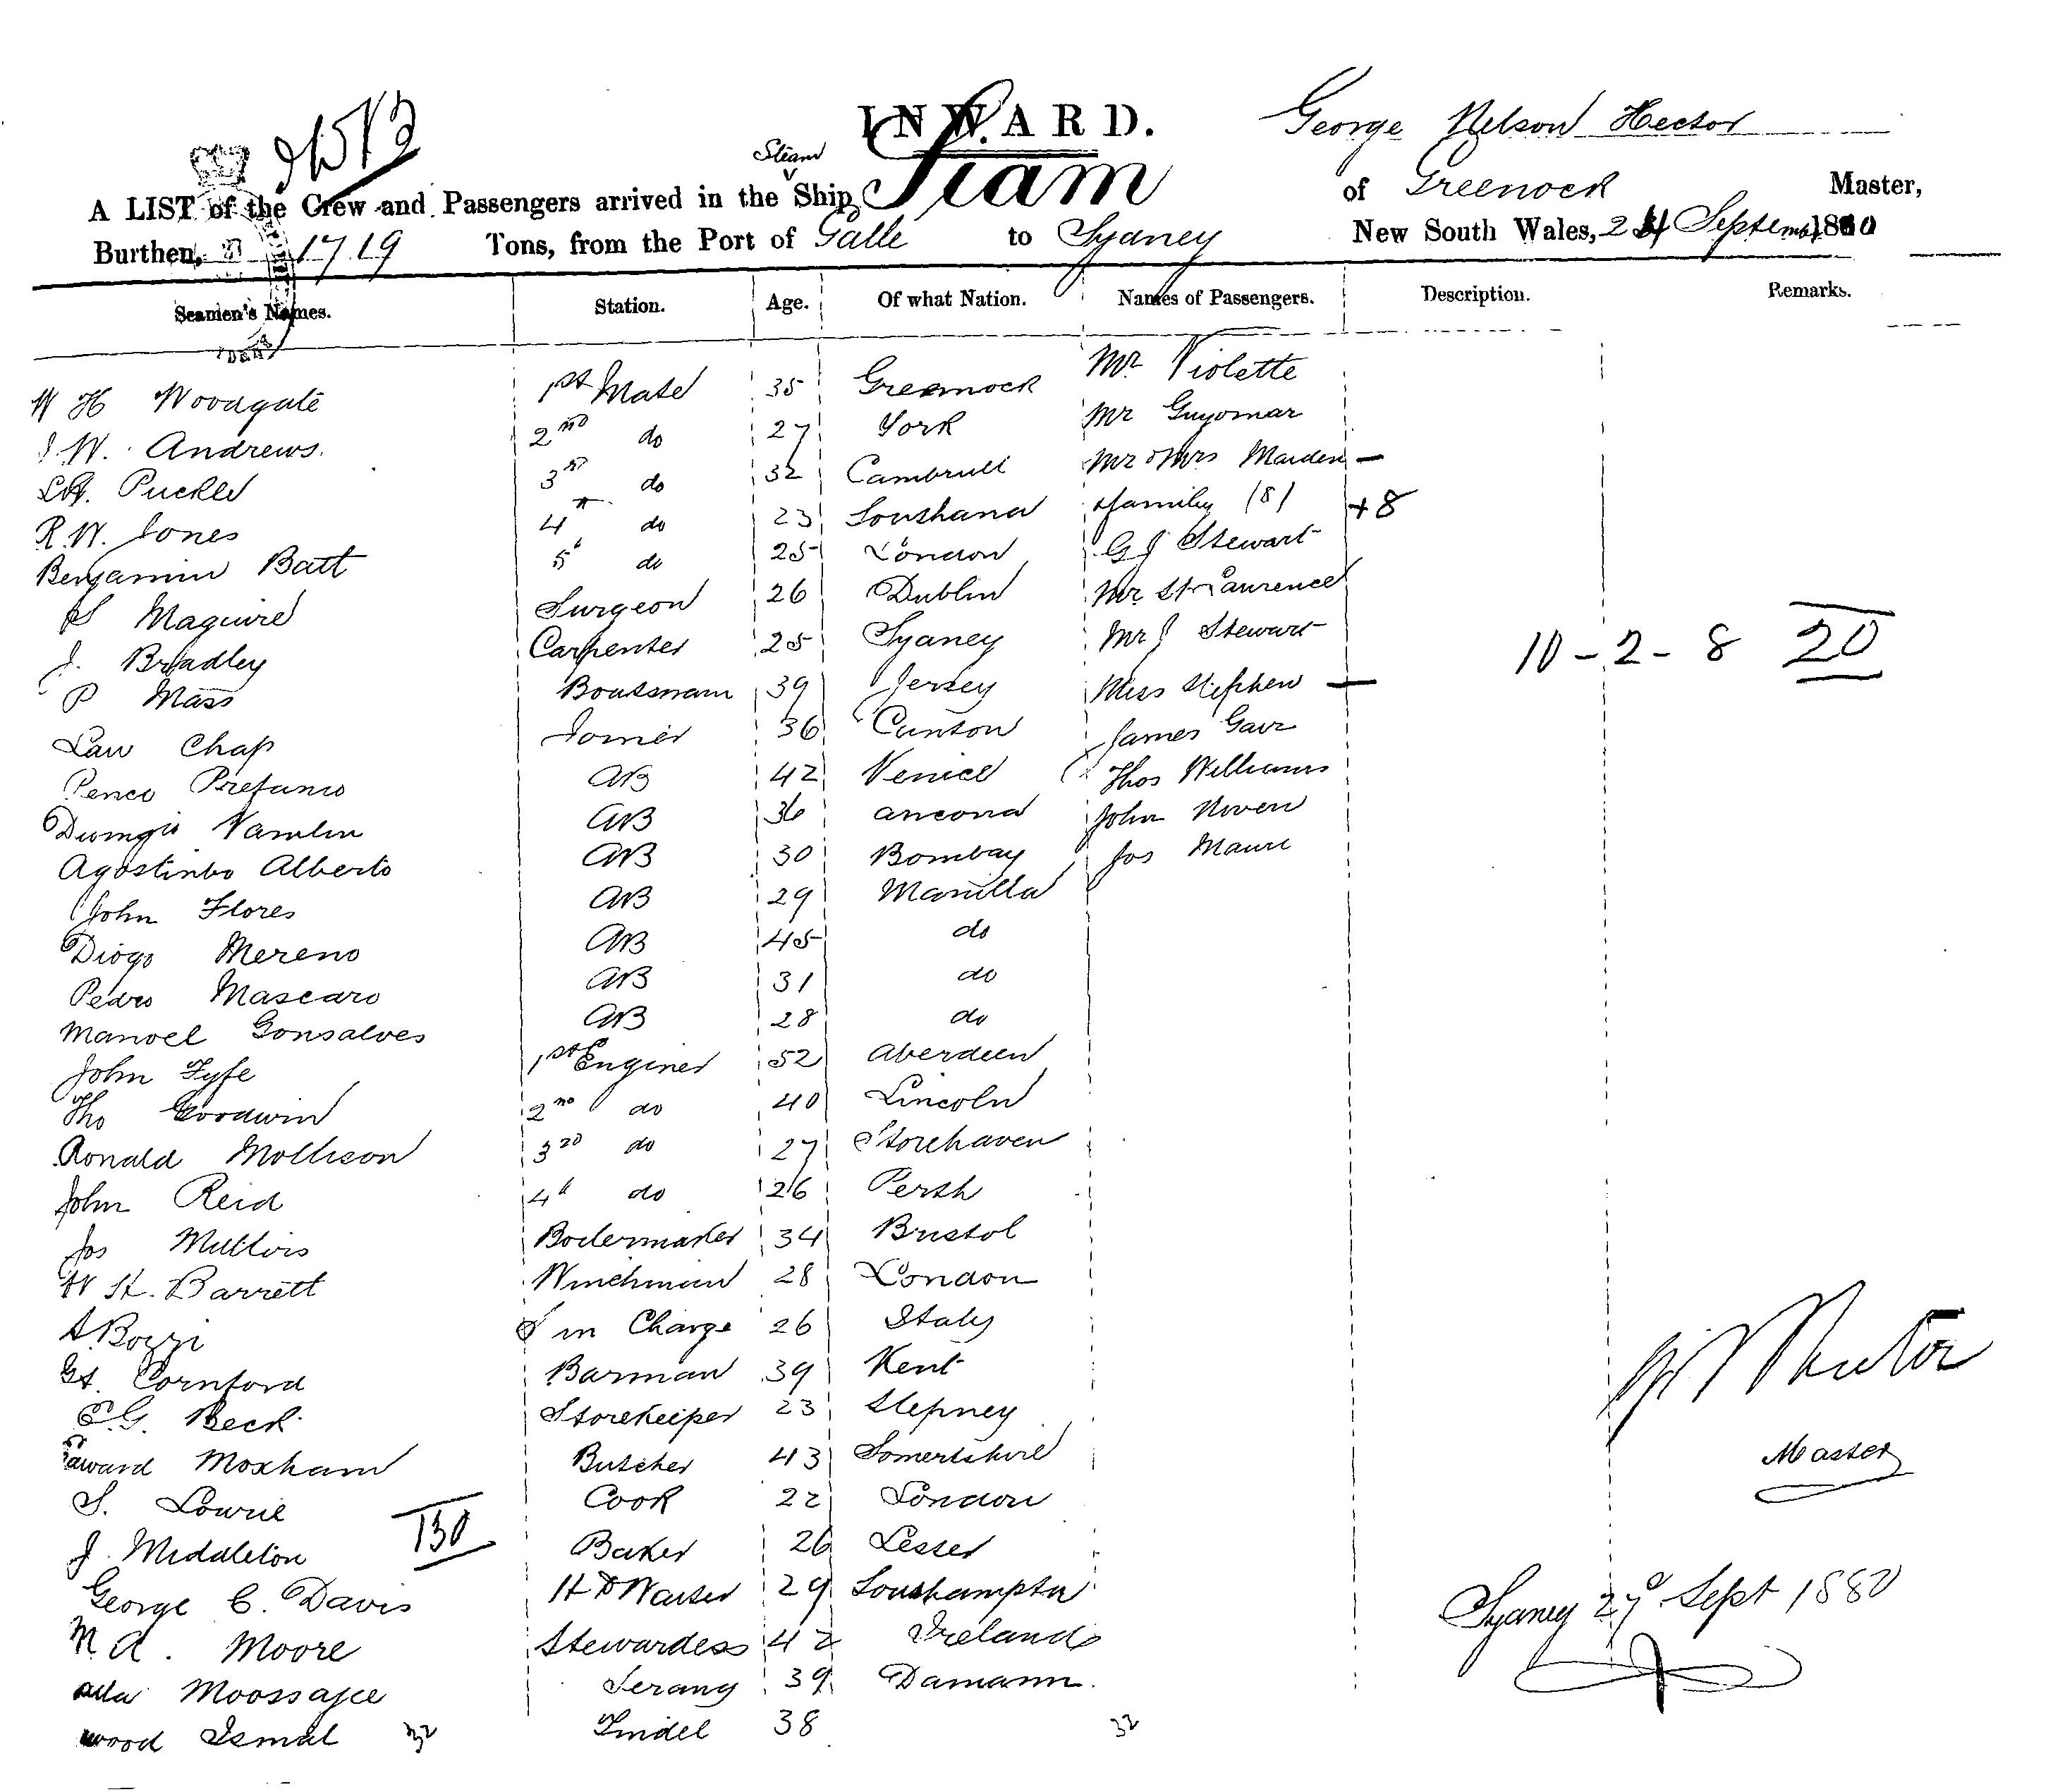 INWARD.
George Nelson Hector
Steam
A LIST of the Crew and Passengers arrived in the Ship Siam of Greenock Master,
Burthen, 1719 Tons, from the Port of Galle to Sydney New South Wales, 24 September 1880
Seamen's Names. Station. Age. Of what Nation. Names of Passengers. Description. Remarks.
W H Woodgate 1st Mate 35 Greenock Mr Violette
J. W. Andrews. 2nd do 27 York Mr Guyomar
Puckle 3rd do 32 Mr & Mrs Marden —
R. W. Jones 4 do 23 family (8) +8
Benjamin Batt 5 do 25 London G J Stewart
Maguire Surgeon 26 Dublin Mr St Laurence
J. Bradley Carpenter 25 Sydney Mr J Stewart 10 - 2 - 8 20
P Mass Boatsman 39 Jersey Miss Stephen —
Law Chap Joiner 36 Canton James Gavr
Penco Prefanio AB 42 Venice Thos Williams
AB 36 Ancona John Niven
Agostinho Alberto AB 30 Bombay Jos
John Flores AB 29 Manilla
Diogo Mereno AB 45 do
Pedro Mascaro AB 31 do
Manoel Gonsalves AB 28 do
John Fyfe 1st Enginer 52 Aberdeen
Tho Goodwin 2nd do 40 Lincoln
Ronald Mollison 3rd do 27 Stonehaven
John Reid 4th do 26 Perth
Jos Boilermaker 34 Bristol
W H. Barrett Winchman 28 London
A Bozzi in Charge 26 Italy
Gt. Cornford Barman 39 Kent
E. G. Beck Storekeeper 23 Stepney
Edward Moxham Butcher 43 Somertshire
Master
S. Lowrie Cook 22 London
130
J. Middleton Baker 26
George C. Davis Hd Waiter 29 Southampton
Sydney 27 Sept 1880
M A. Moore Stewardess 42 Ireland
Moossajee Serang 39 Damann.
Ismal 32 Tindel 38 32